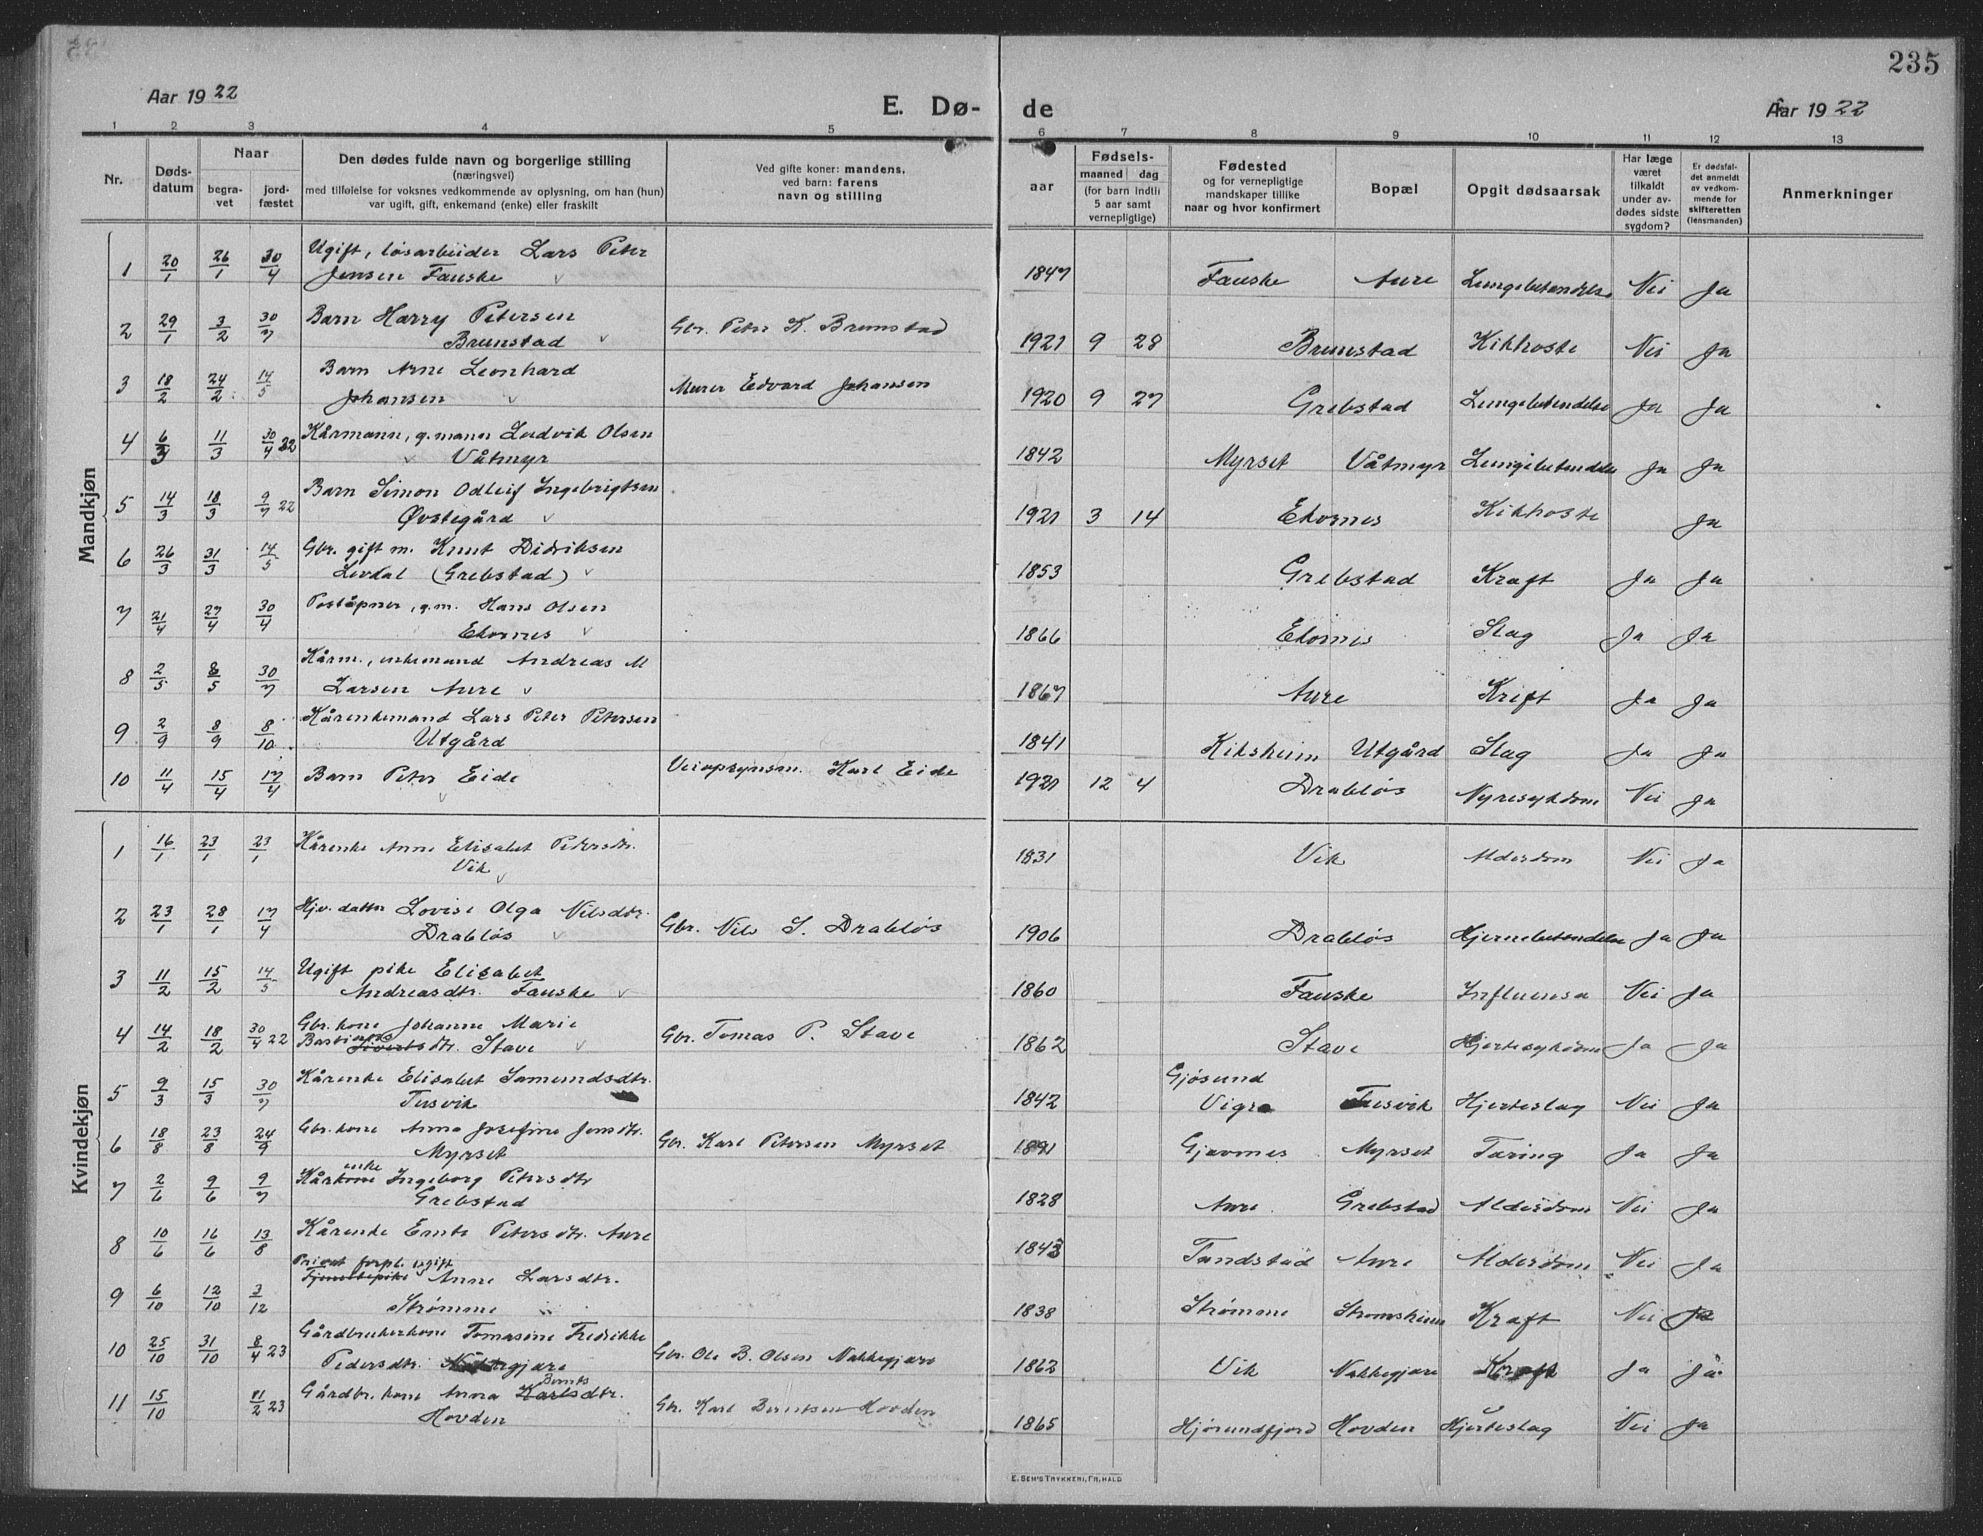 235
Aar 1922
E. Dø-
de
Aar 1922
1 2 3 4 5 6 7 8 9 10 11 12 13
Nr.
Døds-
datum
Naar
begra-
vet
jord-
fæstet
Den dødes fulde navn og borgerlige stilling
(næringsvei)
med tilføielse for voksnes vedkommende av oplysning, om han (hun)
var ugift, gift, enkemand (enke) eller fraskilt
Ved gifte koner: mandens,
ved barn: farens
navn og stilling
aar
Fødsels-
maaned dag
(for barn indtil
5 aar samt
vernepligtige)
Fødested
og for vernepligtige
mandskaper tillike
naar og hvor konfirmert
Bopæl
Opgit dødsaarsak
Har læge
været
tilkaldt
under av-
dødes sidste
sygdom?
Er dødsfal-
det anmeldt
av vedkom-
mende for
skifteretten
(lensmanden)
Anmerkninger
Mandkjøn
1 20/1 26/1 30/4 Ugift, løsarbeider Lars Peter
Jensen Fauske 1847 Fauske Aure Lungebetændelse Nei Ja
2 29/1 3/2 30/7 Barn Harry Petersen
Brunstad Gbr. Peter K. Brunstad 1921 9 28 Brunstad Kikhoste Nei Ja
3 18/2 24/2 14/5 Barn Arne Leonhard
Johansen Murer Edvard Johansen 1920 9 27 Grebstad Lungebetendelse Ja Ja
4 6/3 11/3 30/4 22 Kårmann, g.mann Ludvik Olsen
Våtmyr 1842 Myrset Våtmyr Lungebetendelse Ja Ja
5 14/3 18/3 9/7 22 Barn Simon Odleif Ingebrigtsen
Øvstegård 1921 3 14 Ekornes Kikhoste Ja
6 26/3 31/3 14/5 Gbr. gift m. Knut Didriksen
Levdal (Grebstad) 1853 Grebstad Kraft Ja Ja
7 21/4 27/4 30/4 Poståpner, g.m. Hans Olsen
Ekornes 1866 Ekornes Slag Ja Ja
8 2/5 8/5 30/7 Kårm., enkemand Andreas M
Larsen Aure 1867 Aure Krift Ja Ja
9 2/9 8/9 8/10 Kårenkemand Lars Peter Petersen
Utgård 1841 Kiksheim Utgård Slag Ja Ja
10 11/4 15/4 17/4 Barn Peter Eide Veiopsynsm. Karl Eide 1921 12 4 Drabløs Nyresykdom Nei Ja
Kvindekjøn
1 16/1 23/1 23/1 Kårenke Anne Elisabet Petersdtr.
Vik 1831 Vik Alderdom Nei Ja
2 23/1 28/1 17/4 Hjv. datter Lovise Olga Nilsdtr.
Drabløs Gbr. Nils S. Drabløs 1906 Drabløs Hjernebetendelse Ja Ja
3 11/2 15/2 14/5 Ugift pike Elisabet
Andreasdtr. Fauske 1860 Fauske Influensa Nei Ja
4 14/2 18/2 30/4 22 Gbr. kone Johanne Marie
Bastians Sivertsdtr. Stave Gbr. Tomas P. Stave 1862 Stave Hjertesykdom Ja Ja
5 9/3 15/3 30/7 Kårenke Elisabet Samundsdtr.
Tusvik 1842 Gjøsund
Vigra Tusvik Hjerteslag Nei Ja
6 18/8 23/8 24/9 Gbr. kone Anna Josefine Jensdtr.
Myrset Gbr. Karl Petersen Myrset 1891 Gjævnes Myrset Tæring Ja Ja
7 2/6 9/6 9/7 Kårkone enke Ingeborg Petersdtr
Grebstad 1828 Aure Grebstad Alderdom Nei Ja
8 10/6 16/6 13/8 Kårenke Emte Petersdtr. Aure 1843 Tandstad Aure Alderdom Nei Ja
9 6/10 12/10 3/12 Privat forpl. ugift
Tjenestepike Anne Larsdtr.
Strømme 1838 Strømme Strømsheim Kraft Nei Ja
10 25/10 31/10 8/4 23 Gårdbrukerkone Tomasine Fredrikke
Pedersdtr. Nakkegjære Gbr. Ole B. Olsen Nakkegjære 1862 Vik Nakkegjære Kraft Ja Ja
11 15/10 11/2 23 Gårdbr. kone Anna Karlsdtr. Bernts
Hovden Gbr. Karl Berntsen Hovden 1865 Hjørundfjord Hovden Hjerteslag Nei Ja
E. SEM'S TRYKKERI, FR.HALD